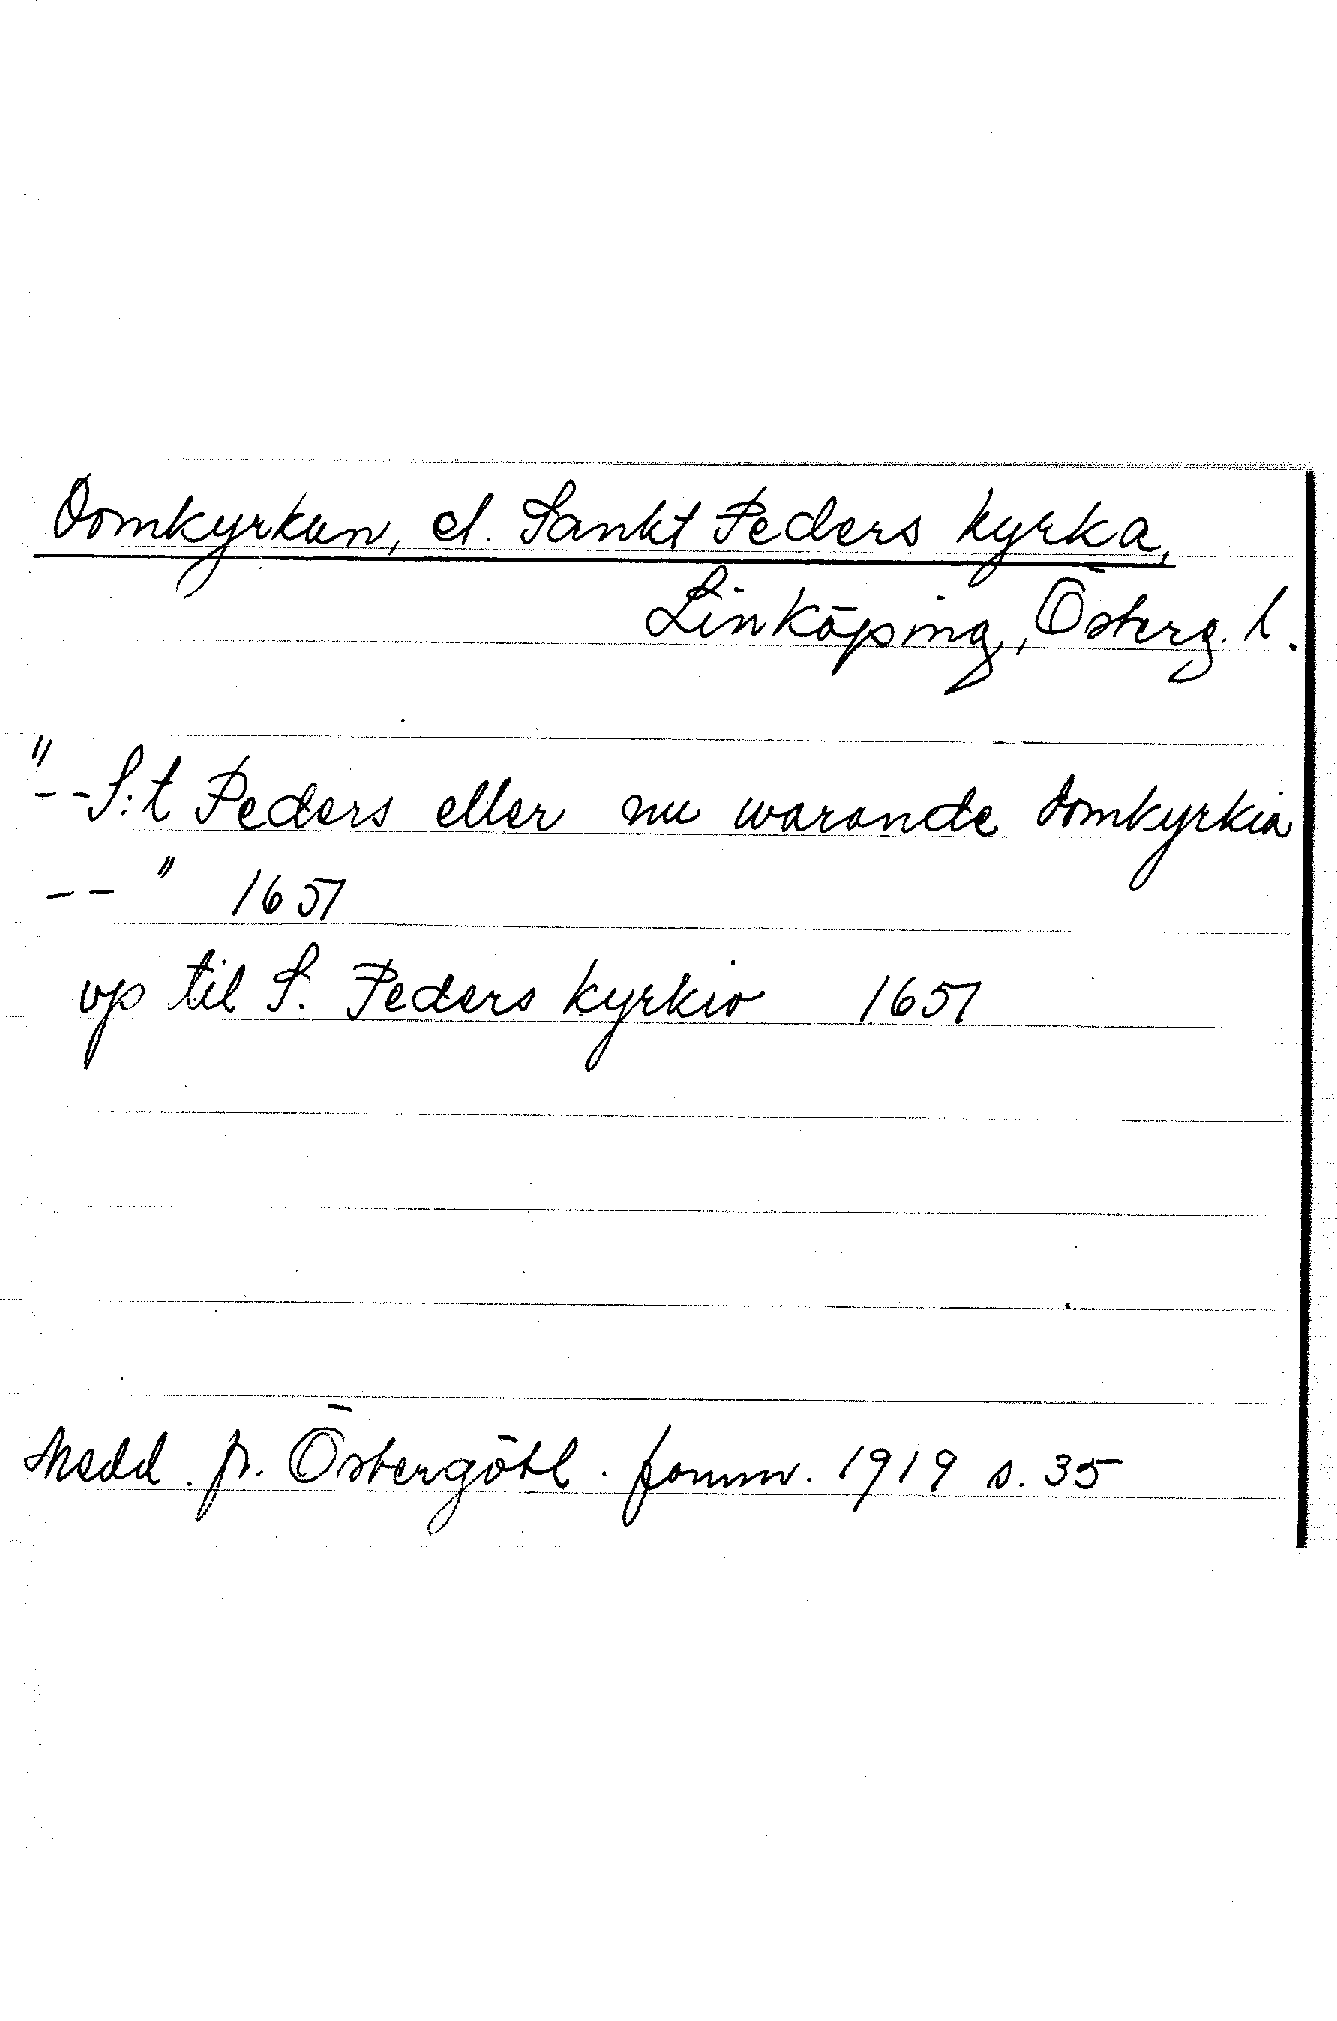 Domkyrkan, el. Sankt Peders kyrka,
Linköping, Österg. l.
"--S:t Peders eller nu warande domkyrkia
--" 1651
vp til S. Peders kyrkio 1651
Medd. fr. Östergötl. fornm. 1919 s. 35